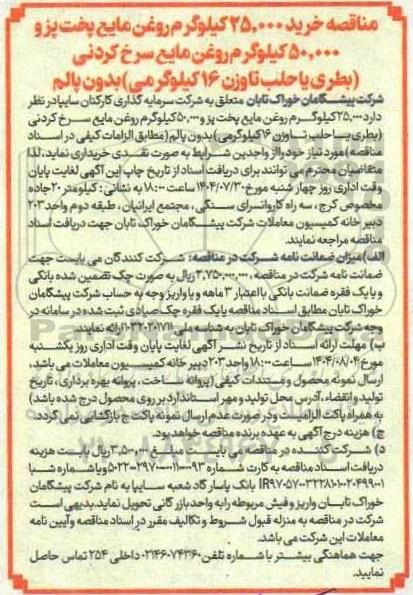 مناقصه خرید ۲۵,۰۰۰ کیلوگرم روغن مایع پخت پز و
۵۰,۰۰۰ کیلوگرم روغن مایع سرخ کردنی
(بطری یا حلب تا وزن ۱۶ کیلوگرمی) بدون پالم
شرکت پیشگامان خوراک تابان متعلق به شرکت سرمایه گذاری کارکنان سایپا در نظر
دارد ۲۵,۰۰۰ کیلوگرم روغن مایع پخت پز و ۵۰,۰۰۰ کیلوگرم روغن مایع سرخ کردنی
(بطری یا حلب تا وزن ۱۶ کیلوگرمی) بدون پالم (مطابق الزامات کیفی در اسناد
مناقصه) مورد نیاز خود را از واجدین شرایط به صورت نقدی خریداری نماید، لذا
متقاضیان محترم می توانند برای دریافت اسناد از تاریخ چاپ این آگهی لغایت پایان
وقت اداری روز چهار شنبه مورخ ۱۴۰۴/۰۷/۳۰ ساعت ۱۸:۰۰ به نشانی: کیلومتر ۲۰ جاده
مخصوص کرج، سه راه کاروانسرای سنگی، مجتمع ایرانیان، طبقه دوم واحد ۲۰۳
دبیر خانه کمیسیون معاملات شرکت پیشگامان خوراک تابان جهت دریافت اسناد
مناقصه مراجعه نمایند.
الف) میزان ضمانت نامه شرکت در مناقصه: شرکت کنندگان می بایست جهت
ضمانت نامه شرکت در مناقصه، ۲,۷۵۰,۰۰۰,۰۰۰ ریال به صورت چک تضمین شده بانکی
و یا یک فقره ضمانت بانکی با اعتبار ۳ ماهه و یا واریز وجه به حساب شرکت پیشگامان
خوراک تابان مطابق اسناد مناقصه یا یک فقره چک صیادی ثبت شده در سامانه در
وجه شرکت پیشگامان خوراک تابان به شناسه ملی ارائه نمایند.
ب) مهلت ارائه اسناد از تاریخ نشر آگهی لغایت پایان وقت اداری روز یکشنبه
مورخ ۱۴۰۴/۰۸/۰۴ ساعت ۱۸:۰۰ واحد ۲۰۳ دبیر خانه کمیسیون معاملات می باشد.
ارسال نمونه محصول و مستندات کیفی (پروانه ساخت، پروانه بهره برداری، تاریخ
تولید و انقضاء، آدرس محل تولید و مهر استاندارد بر روی محصول درج شده باشد)
به همراه پاکت الزامیست و در صورت عدم ارسال نمونه پاکت ج بازگشایی نمی گردد.
ج) هزینه درج آگهی به عهده برنده مناقصه خواهد بود.
د) شرکت کننده در مناقصه می بایست مبلغ ریال بابت هزینه
دریافت اسناد مناقصه به کارت شماره و یا شماره شبا
بانک پاسار گاد شعبه سایپا به نام شرکت پیشگامان
خوراک تابان واریز و فیش مربوطه را به واحد بازرگانی تحویل نماید. بدیهی است
شرکت در مناقصه به منزله قبول شروط و تکالیف مقرر در اسناد مناقصه و آیین نامه
معاملات این شرکت می باشد.
جهت هماهنگی بیشتر با شماره تلفن ۰۲۱۴۶۰۷۴۳۶۰ داخلی ۲۵۴ تماس حاصل
نمایید.